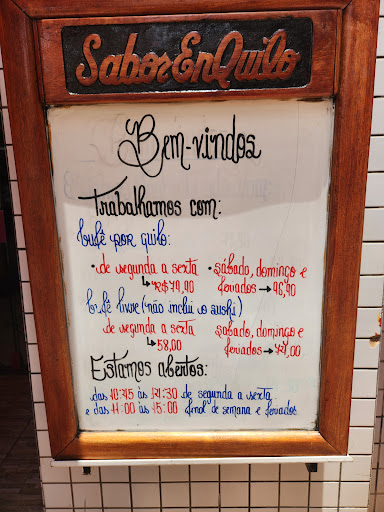 Sabor En Quilo
Bem-vindos
Trabalhamos com:
bufê por quilo:
• de segunda a sexta • sábado, domingo e
↳ R$79,90 feriados → 96,90
bufê livre (não inclui o sushi)
de segunda a sexta sabado, domingo e
↳ 58,00 feriados →
Estamos abertos:
das 10:45 às de segunda a sexta
e das 11:00 às 15:00 final de semana e feriados